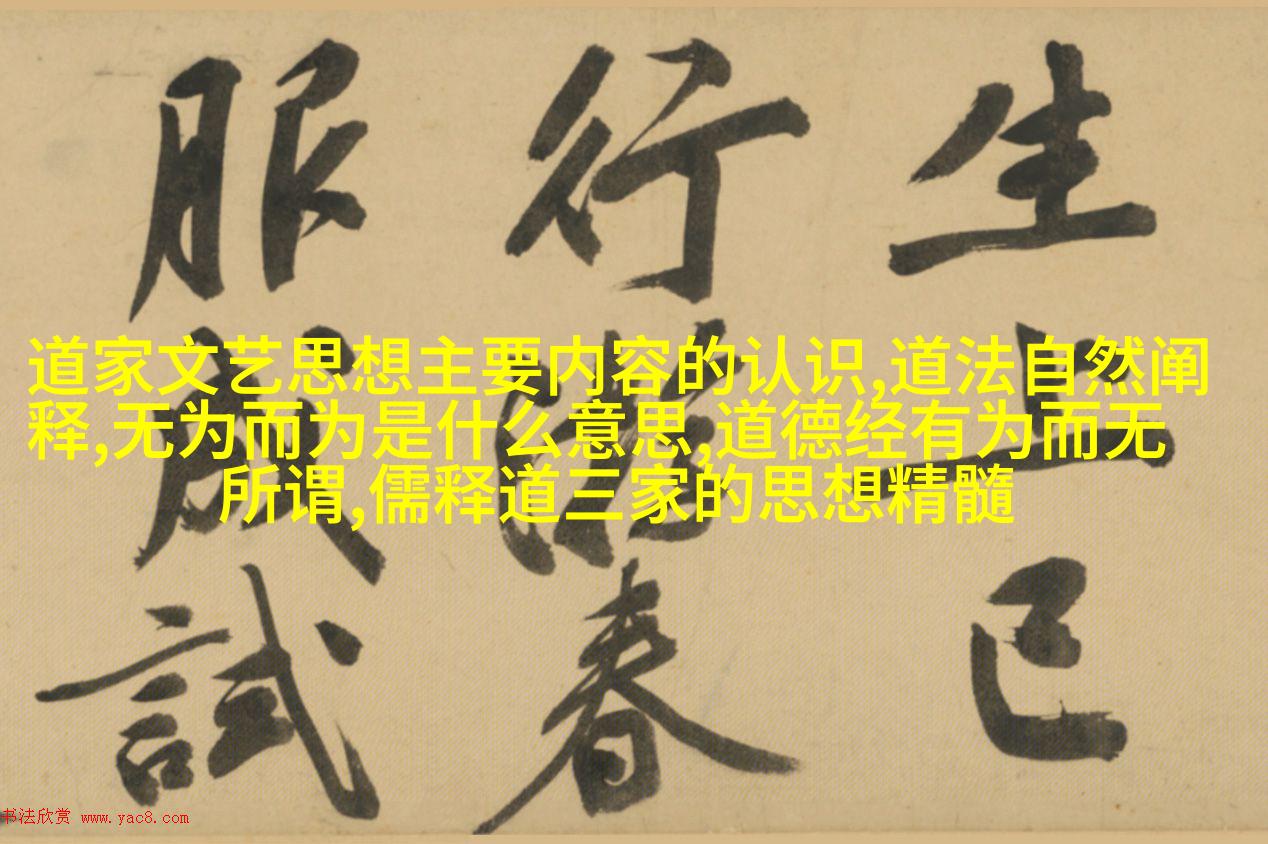 生上巳
行春
服成試
道家文艺思想主要内容的认识,道法自然阐
释,无为而为是什么意思,道德经有为而无
所谓,儒释道三家的思想精髓
书法欣赏 www.yac8.com